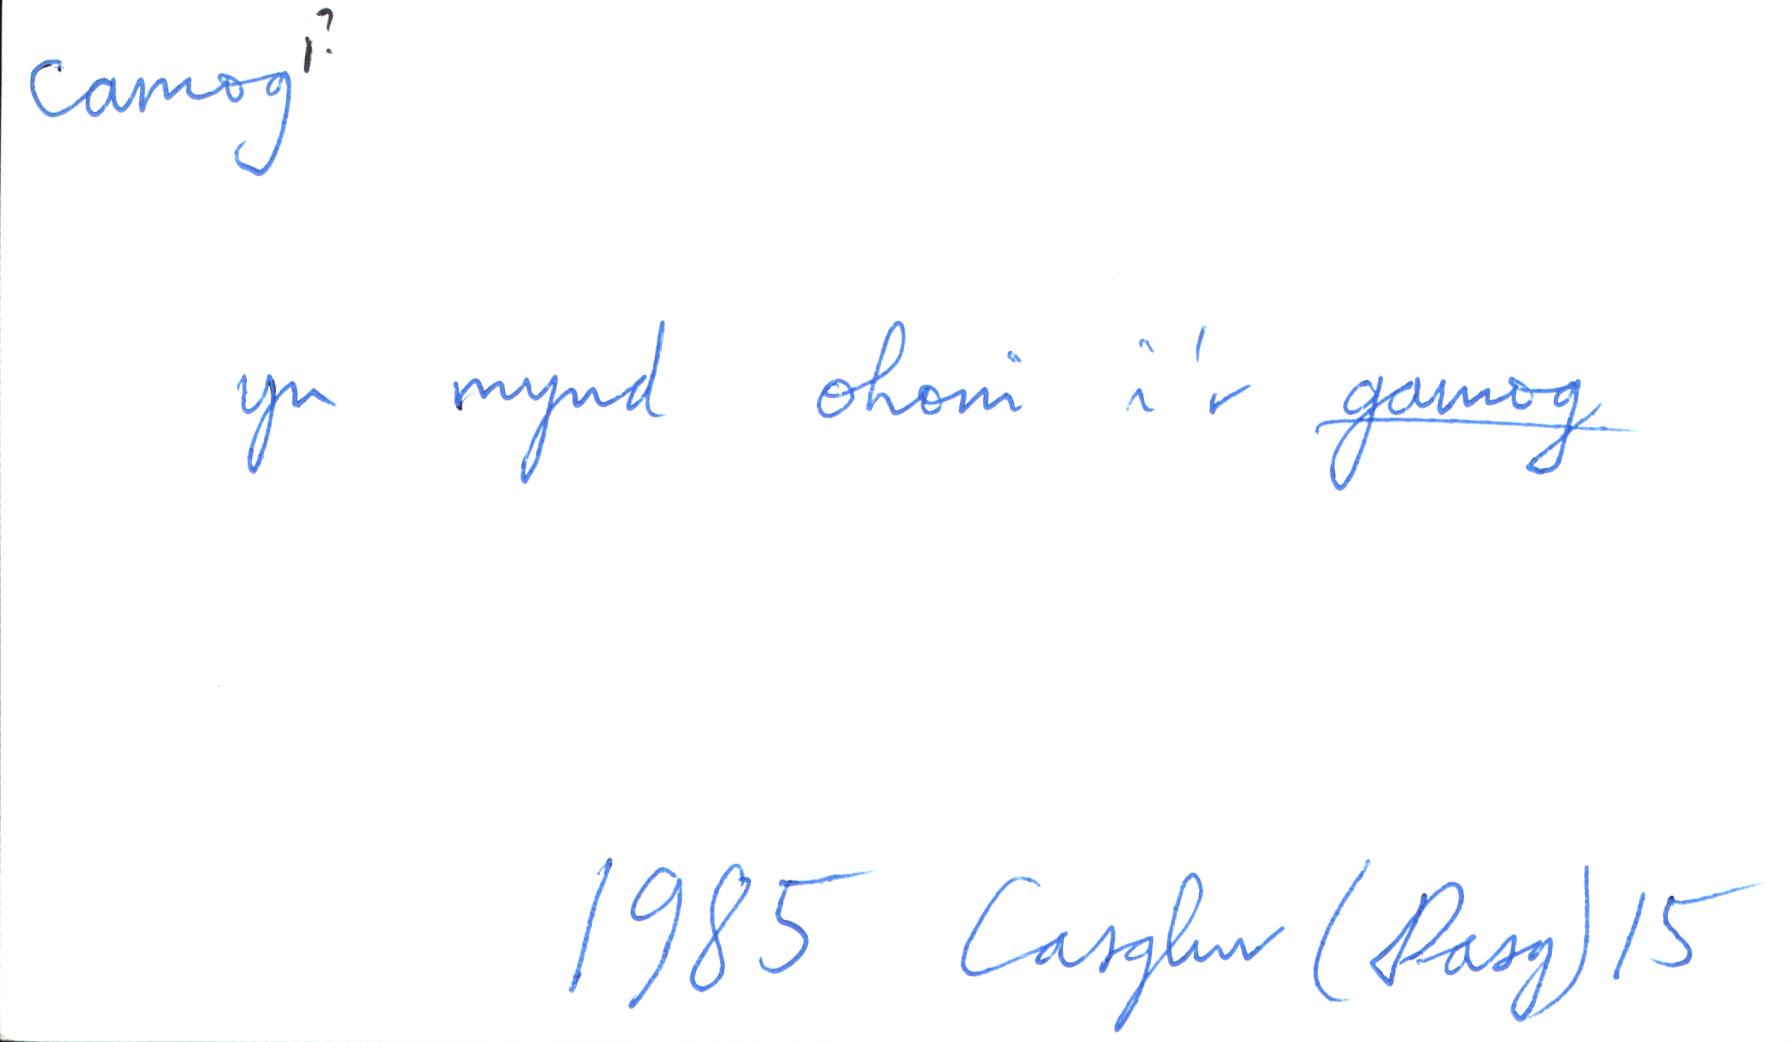 Camog 1?
yn mynd ohoni i'r gamog
1985 Casglwr (Pasg) 15